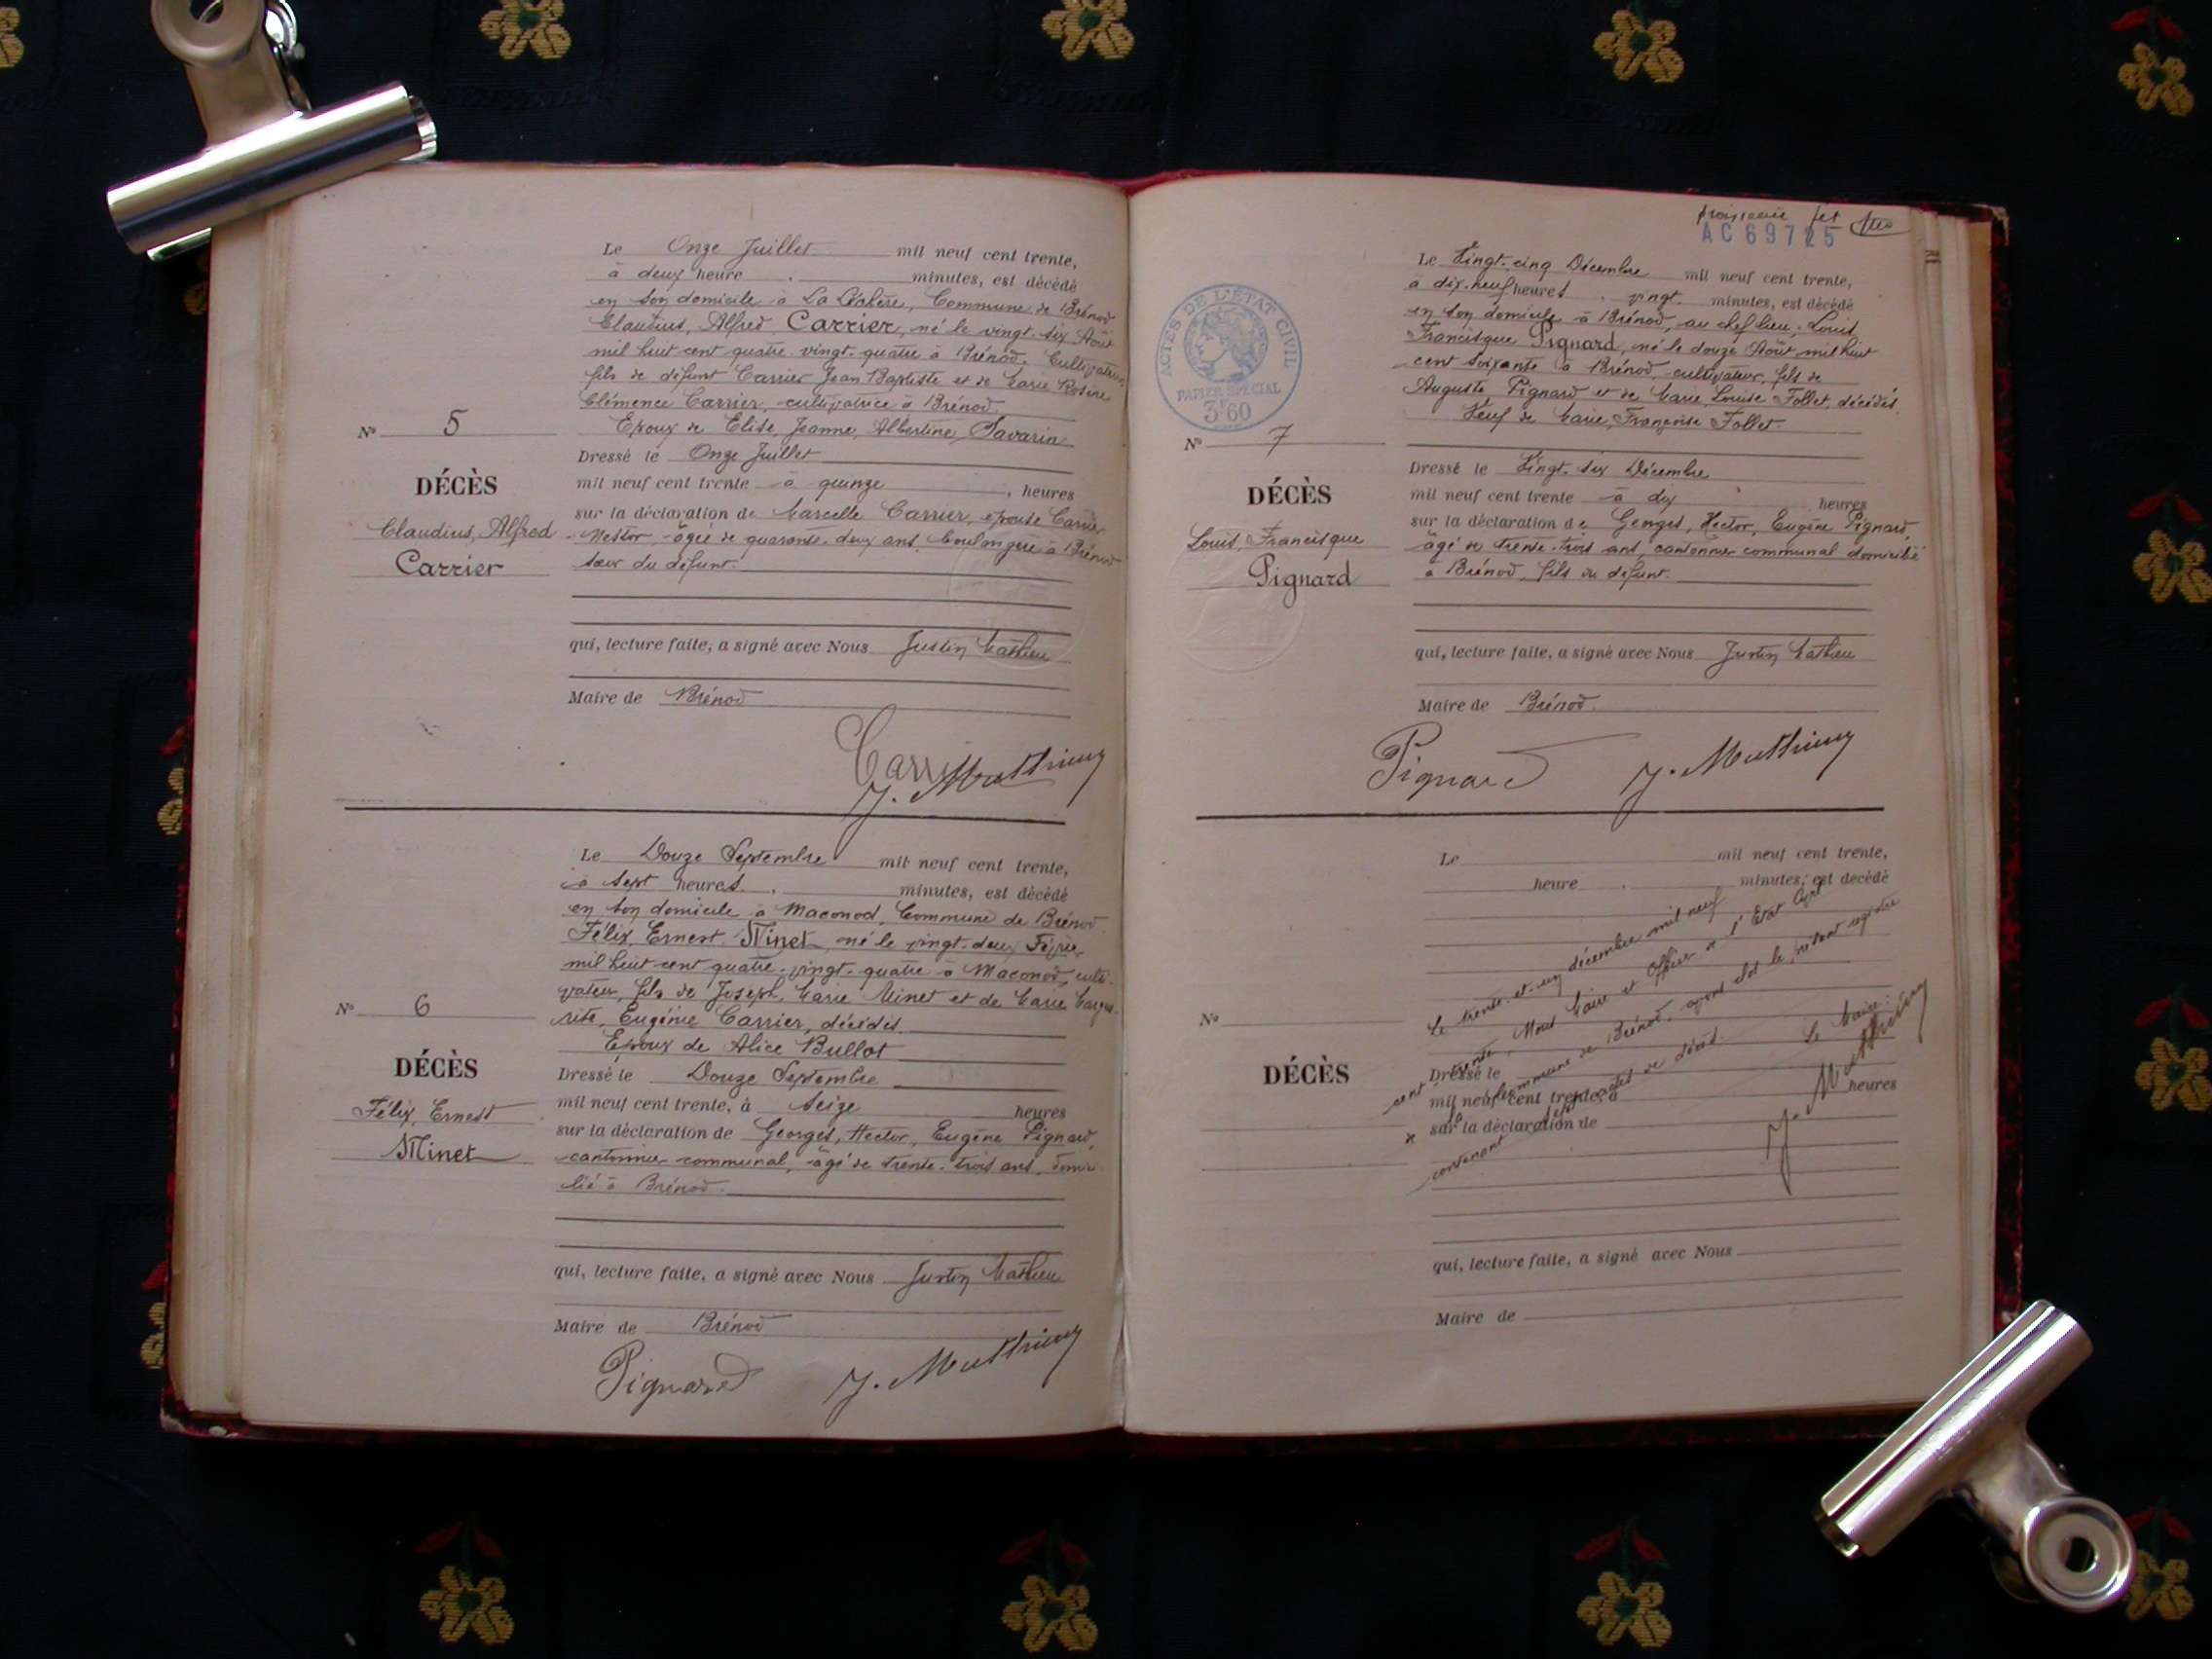 Le Onze Juillet mil neuf cent trente,
à deux heure . minutes, est décédé
en son domicile à La Léchère, Commune de Brénod
Claudius, Alfred Carrier, né le vingt-six Août
mil huit cent quatre-vingt-quatre à Brénod. Cultivateur,
fils de défunt Carrier Jean Baptiste et de Marie Rosine
Clémence Carrier, cultivatrice à Brénod.
Epoux de Elise, Jeanne, Albertine, Savarin
N° 5
DÉCÈS
Claudius, Alfred
Carrier
Dressé le Onze Juillet
mil neuf cent trente à quinze , heures
sur la déclaration de Marcelle Carrier, épouse Carrier
Nestor, âgée de quarante-deux ans, boulangère à Brénod
sœur du défunt.
qui, lecture faite, a signé avec Nous Justin Mathieu
Maire de Brénod
Carrier
J. Matthieu
Le Douze Septembre mil neuf cent trente,
à sept heures . minutes, est décédé
en son domicile à Maconod, Commune de Brénod
Félix, Ernest Minet, né le vingt-deux Février
mil huit cent quatre-vingt-quatre à Maconod, culti-
vateur, fils de Joseph, Marie Minet et de Marie Margue-
rite, Eugénie Carrier, décédés.
Epoux de Alice Bullot
N° 6
DÉCÈS
Félix, Ernest
Minet
Dressé le Douze Septembre
mil neuf cent trente, à seize heures
sur la déclaration de Georges, Hector, Eugène Pignard,
cantonnier communal, âgé de trente-trois ans, domici-
lié à Brénod.
qui, lecture faite, a signé avec Nous Justin Mathieu
Maire de Brénod
Pignard
J. Matthieu
AC 69725
ACTES DE L'ÉTAT CIVIL
PAPIER SPÉCIAL
3F60
Le Vingt-cinq Décembre mil neuf cent trente,
à dix-neuf heures . vingt minutes, est décédé
en son domicile à Brénod, au chef lieu, Louis
Francisque Pignard, né le douze Août mil huit
cent soixante à Brénod, cultivateur, fils de
Auguste Pignard et de Marie Louise Follet, décédés.
Veuf de Marie, Françoise Follet.
N° 7
DÉCÈS
Louis, Francisque
Pignard
Dressé le Vingt-six Décembre
mil neuf cent trente à dix heures
sur la déclaration de Georges, Hector, Eugène Pignard,
âgé de trente-trois ans, cantonnier communal domicilié
à Brénod, fils du défunt.
qui, lecture faite, a signé avec Nous Justin Mathieu
Maire de Brénod.
Pignard
J. Matthieu
Le mil neuf cent trente,
heure . minutes, est décédé
N°
DÉCÈS
Dressé le
mil neuf cent trente, à heures
sur la déclaration de
qui, lecture faite, a signé avec Nous
Maire de
Le trente-et-un décembre mil neuf
cent trente, Nous Maire et Officier de l'Etat Civil
de la Commune de Brénod, avons clos le présent registre
contenant sept actes de décès.
Le Maire:
J. Matthieu